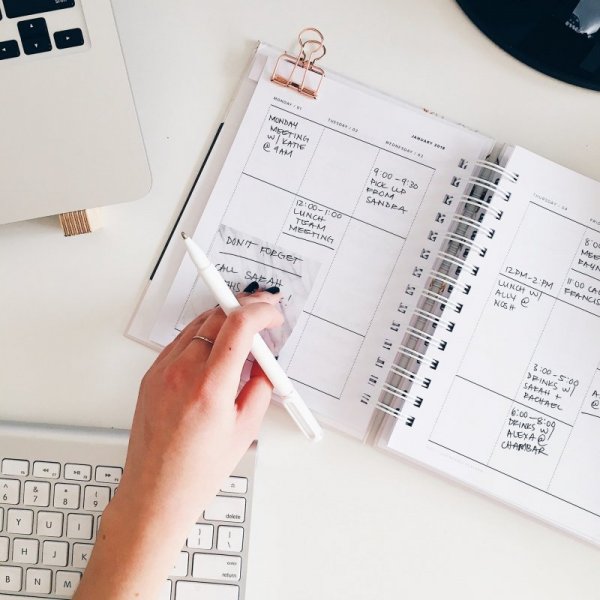 JANUARY 2018
MONDAY / 01
TUESDAY / 02
WEDNESDAY / 03
THURSDAY / 04
MONDAY
MEETING
W/ KATIE
@ 9AM
12:00-1:00
LUNCH
TEAM
MEETING
9:00-9:30
PICK UP
FROM
SANDRA
DON'T FORGET
CALL SARAH
THIS
!
12PM-2PM
LUNCH W/
ALLY @
NOSH
3:00-5:00
DRINKS W/
SARAH +
RACHAEL
6:00-8:00
DRINKS W/
ALEXA @
CHAMBAR
8:00
MEE
11:00 CA
FRANCIS
delete
return
6
7
8
9
0
Y
U
I
O
H
J
K
B
N
M